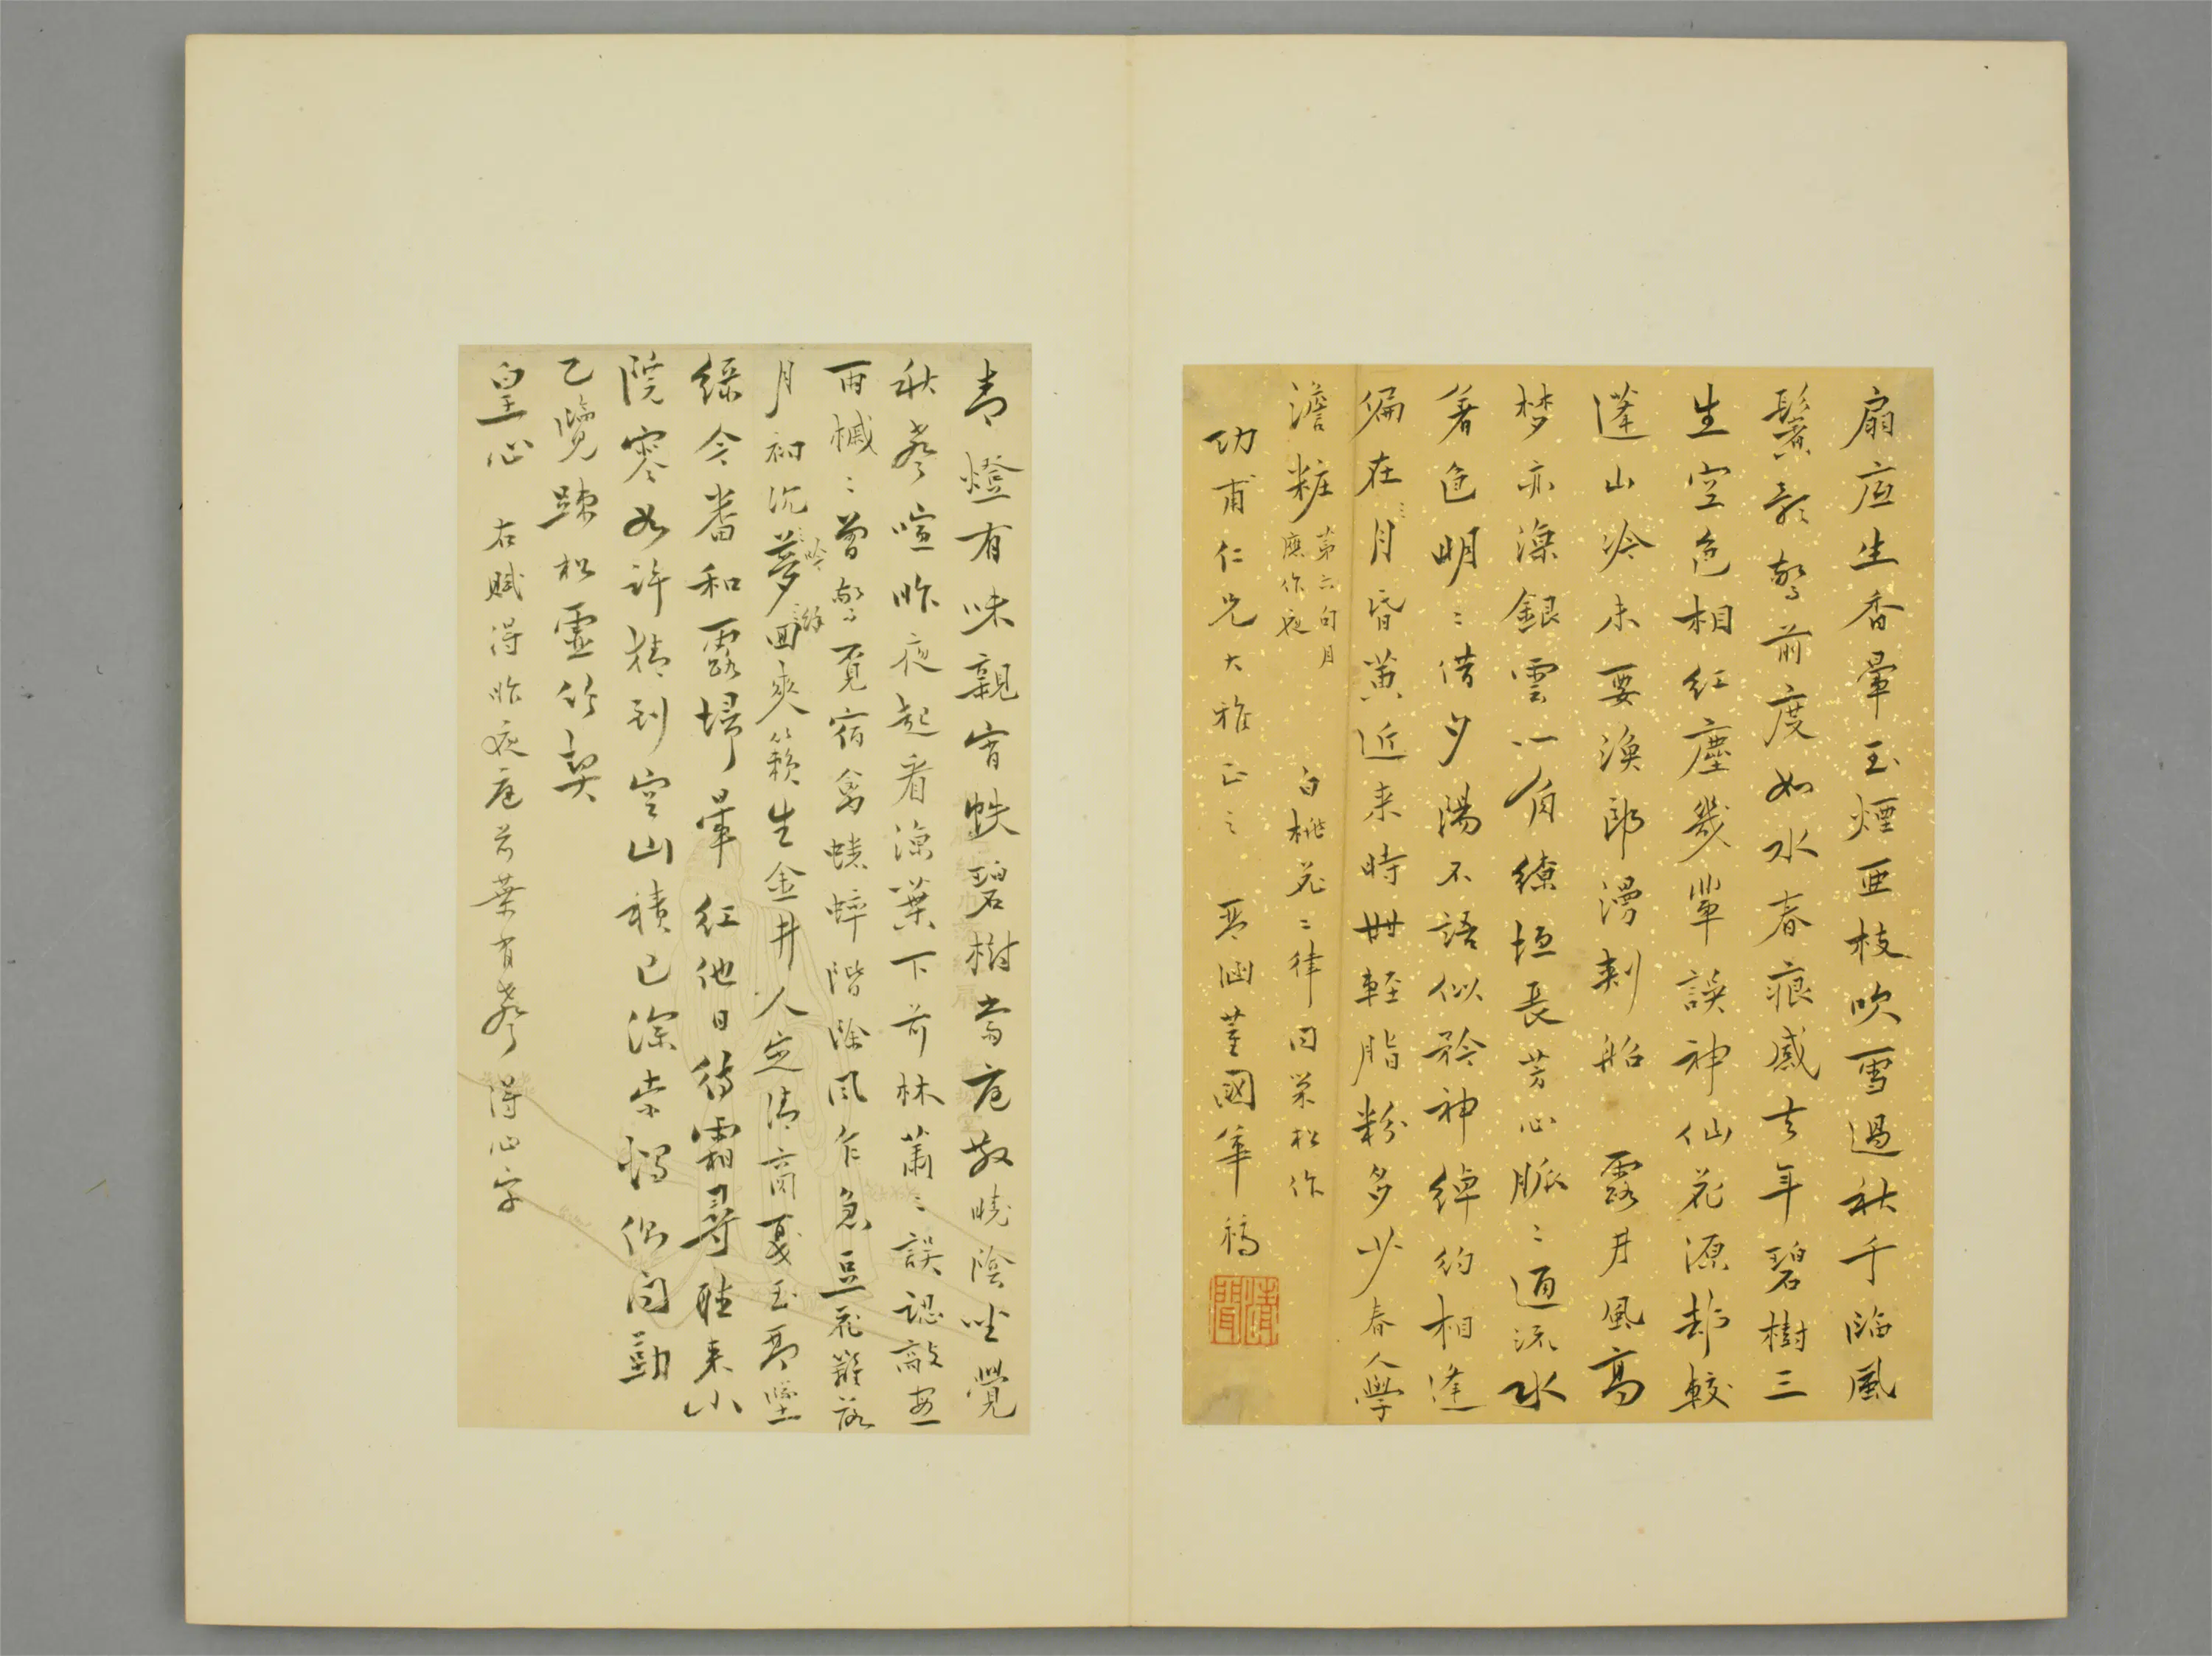 扇底生香暈玉煙亞枝吹雪過秋千臨風
鬢影驚前度如水春痕感去年碧樹三
生空色相紅塵幾輩誤神仙花源却較
蓬山冷未要漁郎漫刺船　露井風高
夢亦涼銀雲一角繚垣長芳心脈〻通流水
著色明〻借夕陽不語似矜神綽約相逢
偏在月昏黃近来時世輕脂粉多少春人學
澹粧
第六句月
應作夜
白桃花二律同榮松作
功甫仁兄大雅正之　琴涵董國華稿
清聞
青燈有味親宵帙碧樹當庭散曉陰坐覺
秋聲喧昨夜起看涼葉下前林蕭〻誤認敲窗
雨槭〻曾驚覓宿禽蟋蟀階除風乍急豆花籬落
月初沉夢回爽籟生金井人定清商戛玉琴墜
吟
綠今番和露掃暈紅他日待霜尋聽来小
院寒如許積到空山積已深
乙覽疎松靈竹契
皇心　右賦得昨夜庭前葉有聲　得心字